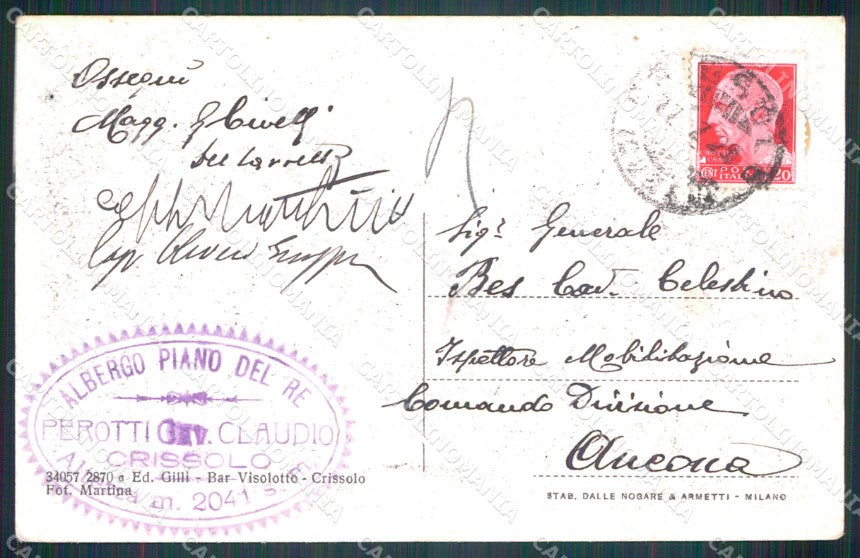 Ossequi
Magg. G Civelli
Cap.
Sigr Generale
Bes Cav. Celestino
Ispettore Mobilitazione
Comando Divisione
Ancona
CENT POSTE 20
ITALIANE
ALBERGO PIANO DEL RE
PEROTTI Cav. CLAUDIO
CRISSOLO
m. 2041 s.
34057 2870 a Ed. Gilli - Bar Visolotto - Crissolo
Fot. Martina
STAB. DALLE NOGARE & ARMETTI - MILANO
CARTOLINOMANIA